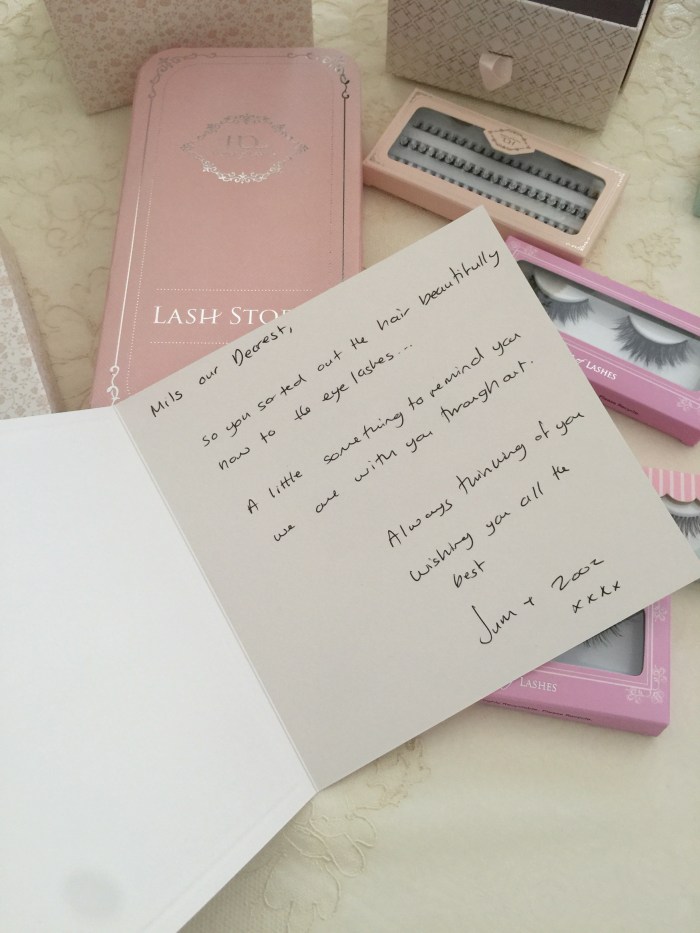 LASH STO
LASHES
LASHES
Mils our Dearest,
so you sorted out the hair beautifully
now to the eye lashes...
A little something to remind you
we are with you throughout.
Always thinking of you
wishing you all the
best
+
xxxx